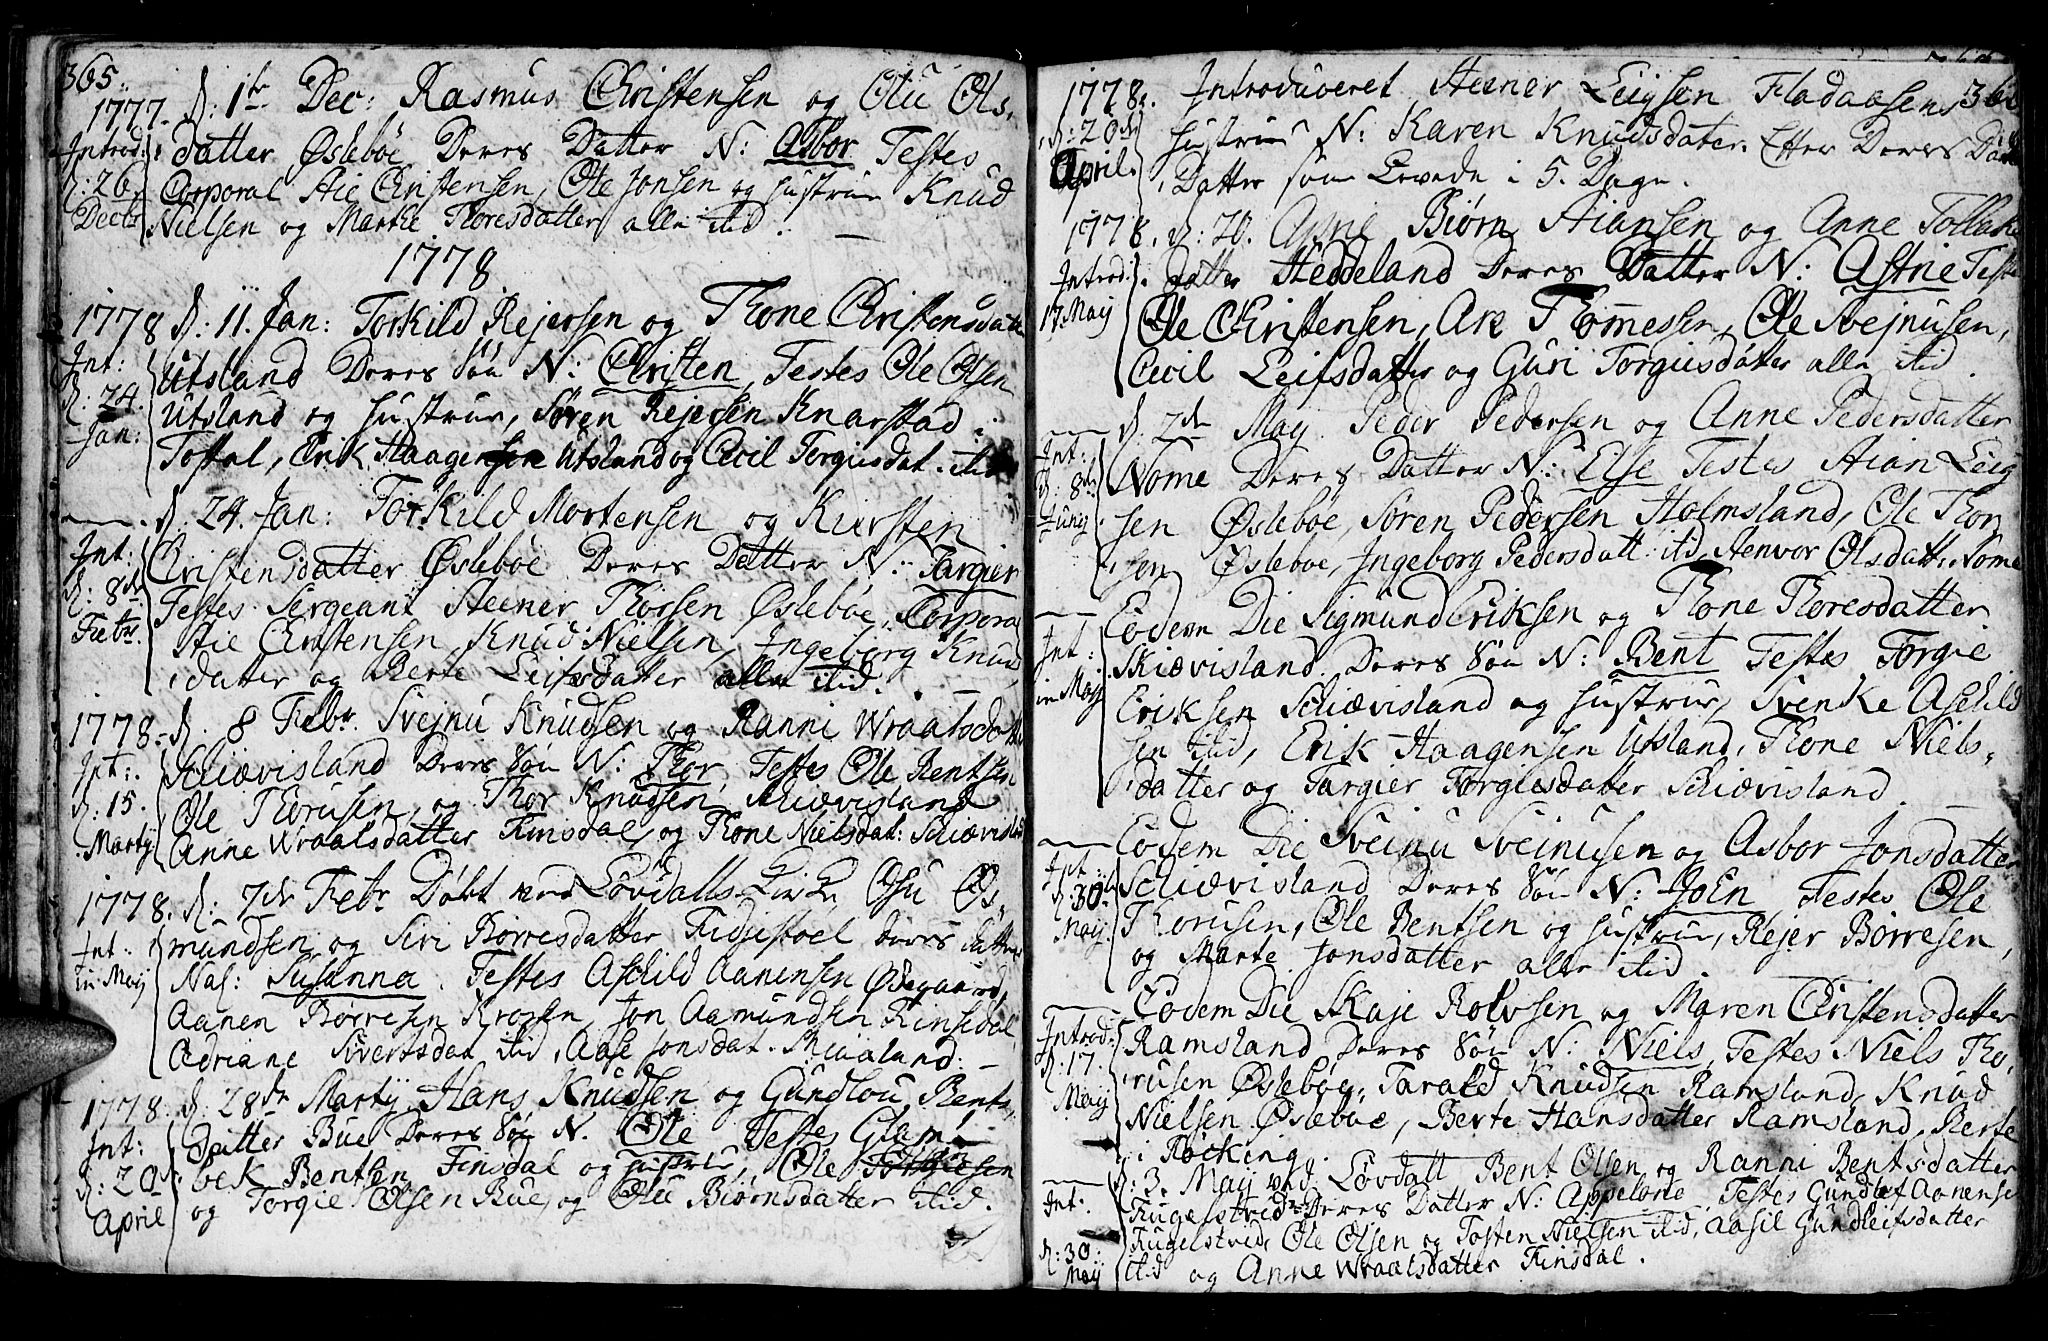 365.
1777. d: 1te Dec: Rasmus Christensen og Olu Ols-
Introd: datter Øslebøe Deres Datter N: Asbor Testes
d: 26 Corporal Aie Christensen, Ole Jonsen og Hustrue Knud
Decbr Nielsen og Marthe Thoresdatter alle itid.
1778
1778 d: 11. Jan: Torkild Rejersen og Thone Christensdatter
Int: Utsland Deres Søn N: Christen, Testes Ole Olsen
d: 24. Utsland og Hustrue, Søren Rejersen Knarstad i
Jan: Tostal, Erik Haagensen Utsland og Cecil Torgiusdat. itid
d. 24. Jan: Torkild Mortensen og Kiersten
Int: Christensdatter Øslebøe Deres Datter N: Targier
d: 8de Testes Sergeant Steener Thorsen Øslebøe, Corporal
Febr. Aie Christensen, Knud Nielsen, Ingeborg Knuds
datter og Berte Leifsdatter alle itid.
1778. d. 8 Febr. Svejnu Knudsen og Ranni Wraalsdatter
Int: Schiævisland Deres Søn N: Thor, Testes Ole Bentsen
d: 15. Ole Thorusen, og Thor Knudsen, Schiævisland
Martij Anne Wraalsdatter Finsdal, og Thone Nielsdat: Schiævisland
1778. d: 7de Febr Døbt ved Løvdalls Kirke Osu Os-
Int: mundsen og Siri Børresdatter Fidjestoel deres datter
in Maij Nas: Susanna. Testes Aschild Aanensen Ødegaard,
Aanen Børresen Krossen, Jon Aamundsen Finsdal,
Adriane Sivertsdat itid, Aase Jonsdat. Skiaaland.
1778. d: 28de Martij Hans Knudsen og Gundlou Bents-
Int: datter Bue Deres Søn N. Ole Testes Glam-
d: 20de bek Bentsen Finsdal og Hustrue, Ole Torgiesen
April og Torgie Olsen Bue, og Olu Biørnsdatter itid.
1778. Introduceret Steener Leigsen Fladaasens 366
d: 20de Hustrue N: Karen Knudsdater. Efter Deres
April. Datter som Levede i 5. Dage.
1778. d: 20. Apr. Biørn Aiansen og Anne Tollaks
Introd: datter Heddeland Deres Datter N: Astrie Testes
17 Maij Ole Christensen, Are Thomessen, Ole Svejnusen,
Cecil Leifsdatter og Guri Torgiusdatter alle itid.
d. 2de Maij Peder Pedersen og Anne Pedersdatter
Int: Nome Deres Datter N: Else Testes Aian Leig
d: 8de sen Øslebøe, Søren Pedersen Holmsland, Ole Thor
Junij sen Øslebøe, Ingeborg Pedersdatt: itd, Stenvor Olsdatt: Nome
Eodem Die Sigmund Eriksen og Thone Thoresdatter
Int: Skiævisland Deres Søn N: Bent Testes Torgie
in Maij Eriksen Schiævisland og Hustrue, Svenke Aschild
sen itid, Erik Haagensen Utsland, Thone Niels-
datter og Targier Torgiusdatter Schiævisland.
Eodem Die Sveinu Sveinusen og Asbor Jonsdatter
Int: Schiævisland Deres Søn N: Joen, Testes Ole
d: 30te Thorusen, Ole Bentsen og Hustrue, Rejer Børresen,
Maij. og Marte Jonsdatter alle itid.
Eodem Die Skaje Rolvsen og Maren Christensdatter
Introd: Ramsland Deres Søn N: Niels, Testes Niels Tho-
d: 17. rusen Øslebøe, Tarald Knudsen Ramsland, Knud
Maij Nielsen Øslebøe, Berte Hansdatter Ramsland, Berte
i Røcking.
d: 3. Maij ved Løvdall Bent Olsen og Ranni Bentsdatter
Int: Fugelstved Deres Datter N: Appelone. Testes Gundlef Aanensen
d: 30: Fugelstved, Ole Olsen og Tosten Nielsen itid, Aasil Gundleifsdatter
Maij itid og Anne Wraalsdatter Finsdal.